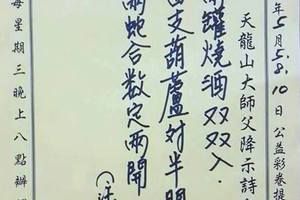 年5月5.8.10日公益彩卷提
天龍山大師父降示詩
罐燒酒双双入.
支葫蘆対半開
兩蛇合数定兩開
每星期三晚上八點辦